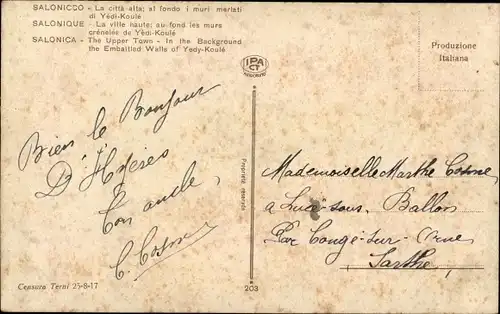 SALONICCO - La città alta; al fondo i muri merlati
di Yèdi-Koulé
SALONIQUE - La ville haute; au fond les murs
crénelés de Yèdi-Koulé
SALONICA - The Upper Town - In the Background
the Embattled Walls of Yedy-Koulé
IPA
CT
Produzione
Italiana
Bien le Bonjour
D'Hyères
Ton oncle,
C. Cosme
Proprietà riservata
Mademoiselle Marthe Cosme
a Lucé-sous, Ballon
Par Congé-sur-Orne
Sarthe
Censura Terni 25-8-17
203